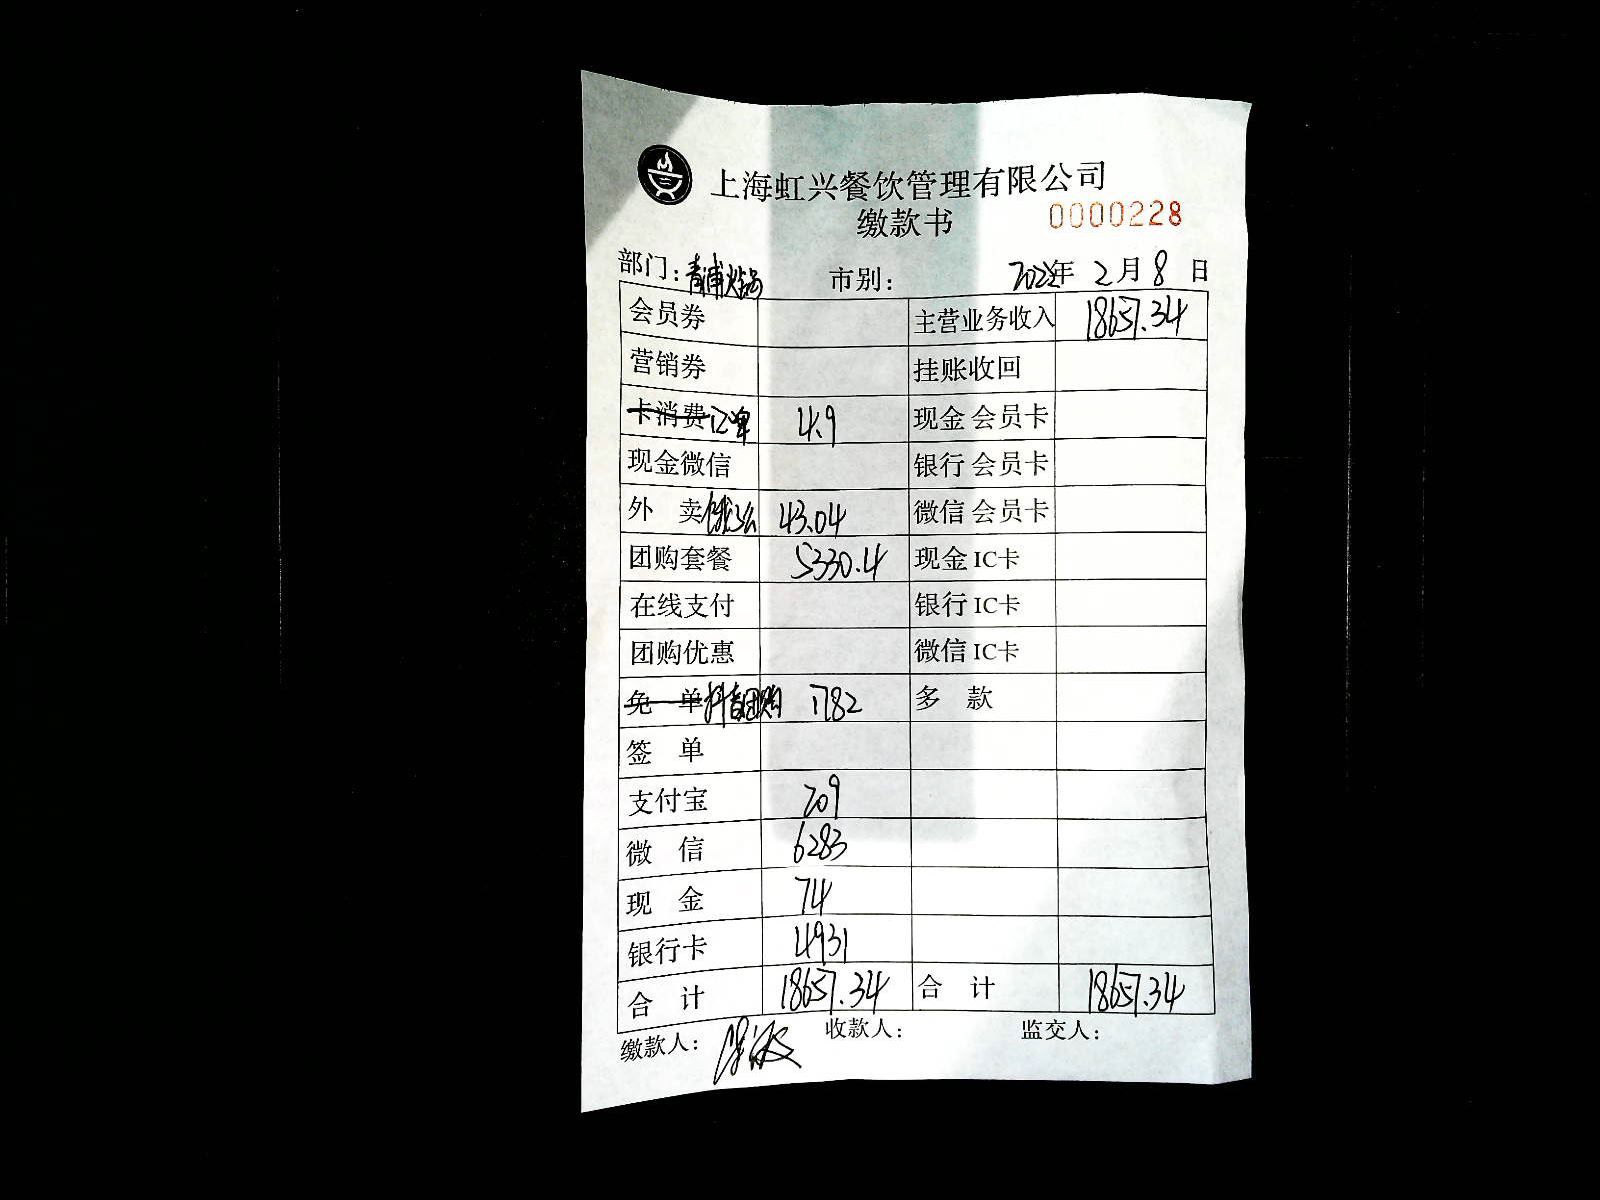 上海虹兴餐饮管理有限公司
缴款书 0000228
部门：青浦火锅 市别： 2022年 2月 8日
会员券 主营业务收入 18657.34
营销券 挂账收回
卡消费 4.9 现金会员卡
现金微信 银行会员卡
外 卖 饿了么 43.04 微信会员卡
团购套餐 5330.4 现金IC卡
在线支付 银行IC卡
团购优惠 微信IC卡
免 单 抖音团购 1782 多 款
签 单
支付宝 209
微 信 6283
现 金 74
银行卡 4931
合 计 18657.34 合 计 18657.34
缴款人： 收款人： 监交人：